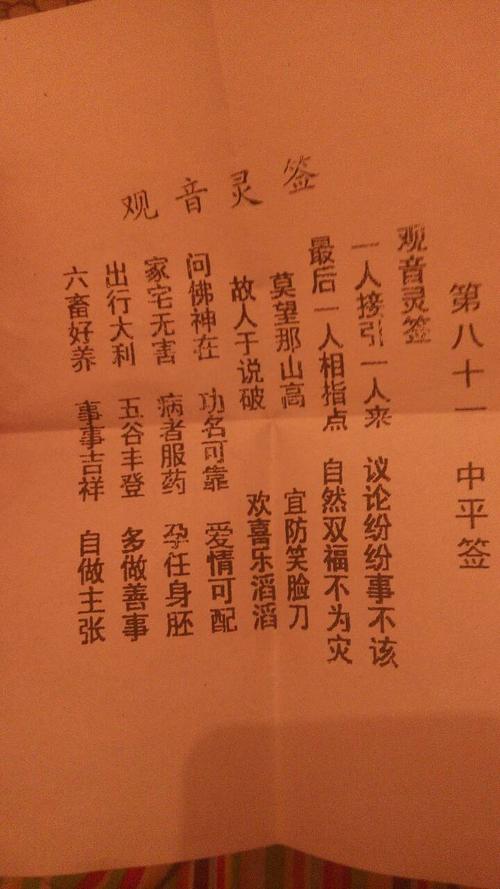 观音灵签
第八十一 中平签
观音灵签
一人接引一人来 议论纷纷事不该
最后一人相指点 自然双福不为灾
莫望那山高 宜防笑脸刀
故人于说破 欢喜乐滔滔
问佛神在 功名可靠 爱情可配
家宅无害 病者服药 孕任身胚
出行大利 五谷丰登 多做善事
六畜好养 事事吉祥 自做主张